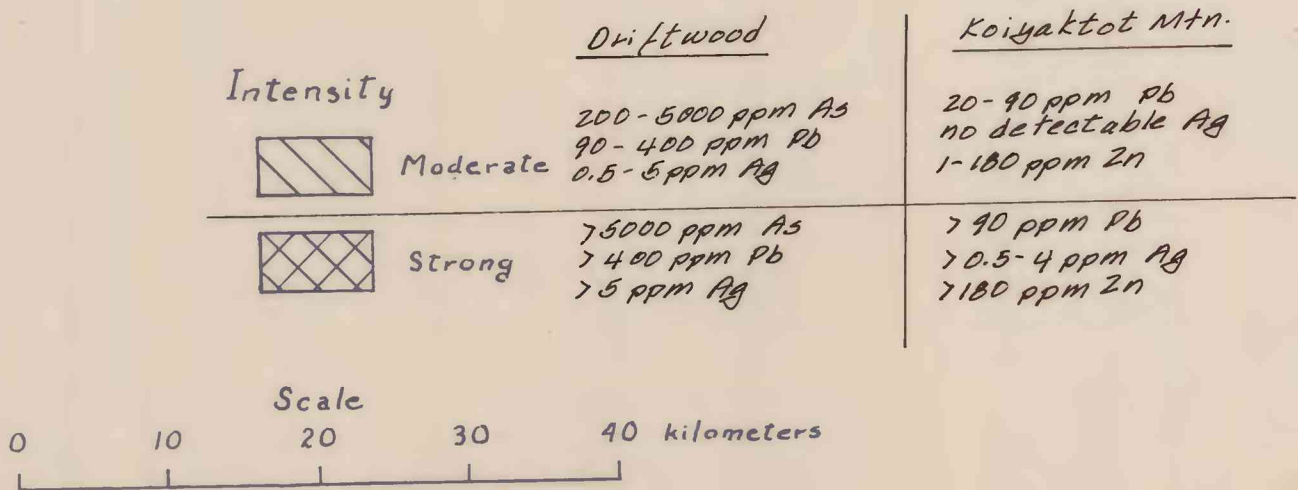 Driftwood
Koiyaktot Mtn.
Intensity
Moderate
200-5000 ppm As
90-400 ppm Pb
0.5-5 ppm Ag
20-90 ppm Pb
no detectable Ag
1-180 ppm Zn
Strong
>5000 ppm As
>400 ppm Pb
>5 ppm Ag
>90 ppm Pb
>0.5-4 ppm Ag
>180 ppm Zn
Scale
0 10 20 30 40 kilometers